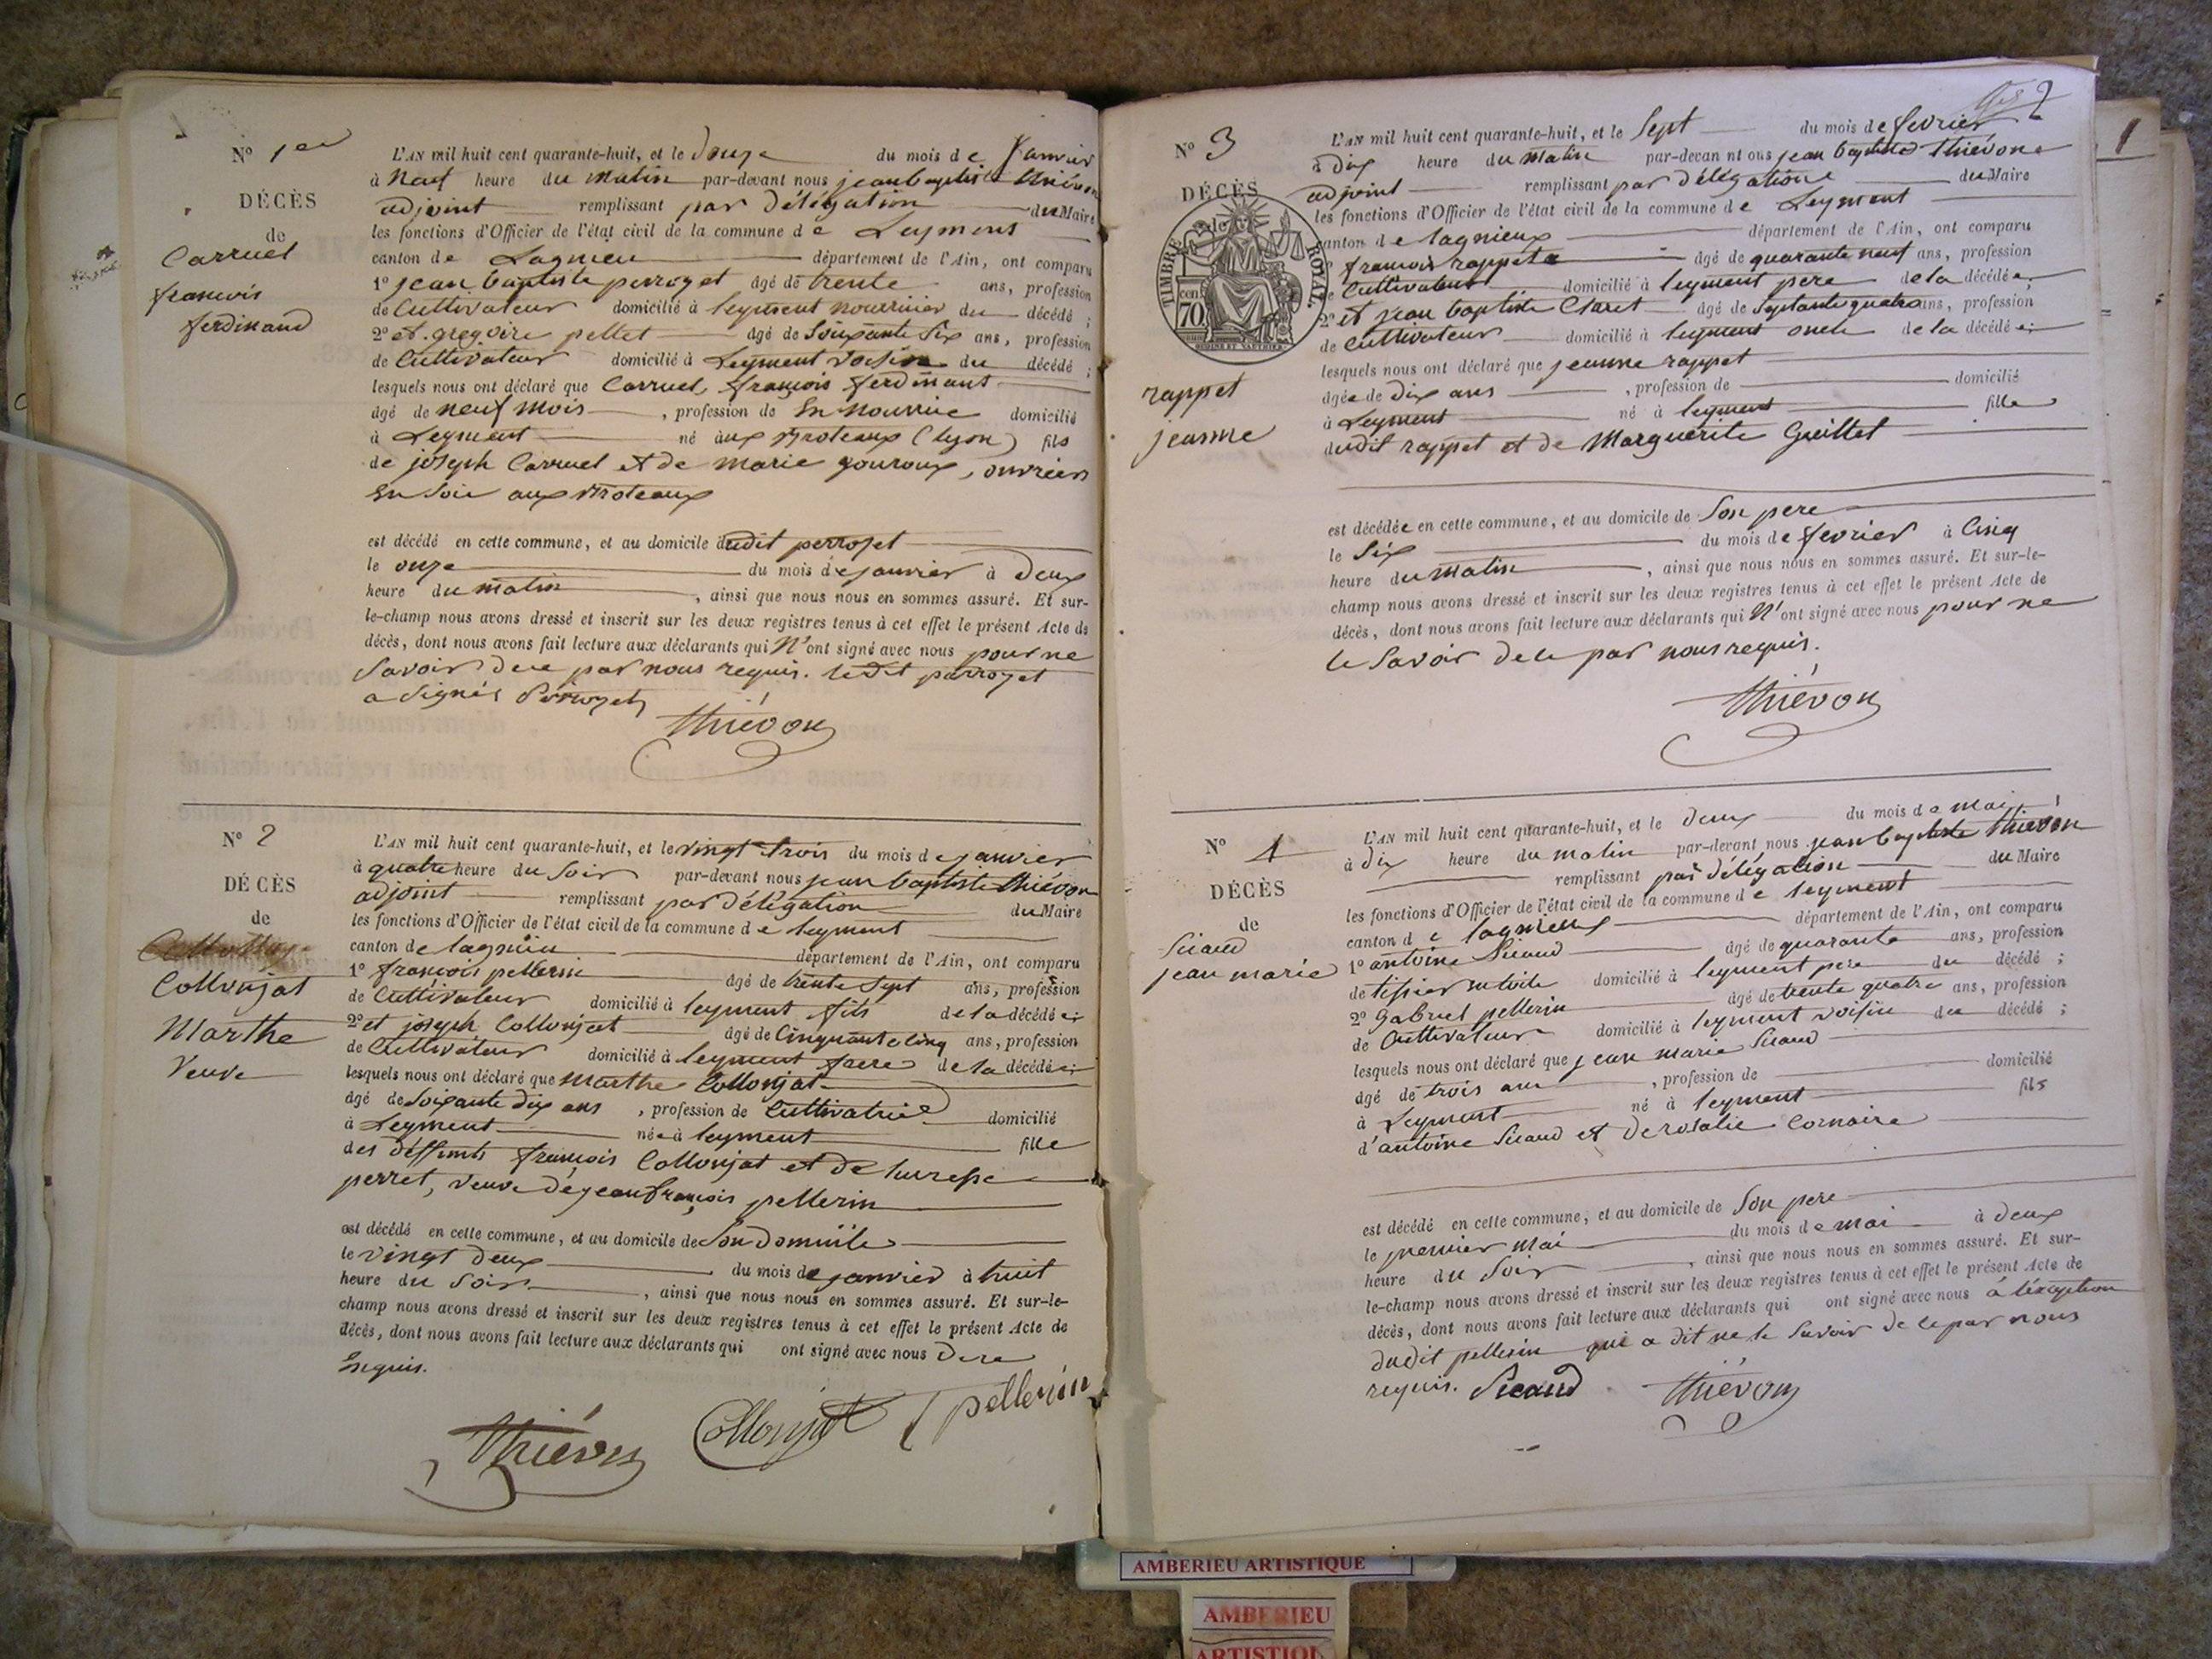 N° 1er
DÉCÈS
de
Carruel
françois
ferdinand
L'AN mil huit cent quarante-huit, et le douze du mois de Janvier
à Neuf heure du matin par-devant nous jean baptiste thiévon
adjoint remplissant par délégation du Maire
les fonctions d'Officier de l'état civil de la commune de Leyment
canton de Lagnieu département de l'Ain, ont comparu
1° jean baptiste perrozet âgé de trente ans, profession
de Cultivateur domicilié à leyment nourricier du décédé ;
2° et gregoire pellet âgé de Soixante Six ans, profession
de Cultivateur domicilié à Leyment voisin du décédé ;
lesquels nous ont déclaré que Carruel, françois ferdinant
âgé de neuf mois , profession de En nourrice domicilié
à Leyment né aux Broteaux (lyon) fils
de joseph Carruel et de marie gouroux, ouvriers
En Soie aux Broteaux
est décédé en cette commune, et au domicile dudit perrozet
le onze du mois de janvier à deux
heure du matin , ainsi que nous nous en sommes assuré. Et sur-
le-champ nous avons dressé et inscrit sur les deux registres tenus à cet effet le présent Acte de
décès, dont nous avons fait lecture aux déclarants qui N'ont signé avec nous pour ne
Savoir de ce par nous requis. ledit perrozet
a Signés Perrozet
thiévon
N° 2
DÉCÈS
de
Collonjat
Marthe
Veuve
L'AN mil huit cent quarante-huit, et le vingt trois du mois de janvier
à quatre heure du Soir par-devant nous jean baptiste thiévon
adjoint remplissant par délégation du Maire
les fonctions d'Officier de l'état civil de la commune de leyment
canton de lagnieu département de l'Ain, ont comparu
1° françois pellerin âgé de trente Sept ans, profession
de Cultivateur domicilié à leyment fils de la décédée ;
2° et joseph Collonjat âgé de Cinquante Cinq ans, profession
de Cultivateur domicilié à leyment frere de la décédée ;
lesquels nous ont déclaré que Marthe Collonjat
âgé de Soixante dix ans , profession de Cultivatrice domicilié
à Leyment née à leyment fille
des deffunts françois Collonjat et de
perret, veuve de jean françois pellerin
est décédé en cette commune, et au domicile de Son Domicile
le vingt deux du mois de janvier à huit
heure du Soir , ainsi que nous nous en sommes assuré. Et sur-le-
champ nous avons dressé et inscrit sur les deux registres tenus à cet effet le présent Acte de
décès, dont nous avons fait lecture aux déclarants qui ont signé avec nous De ce
Enquis.
Thiévon Collonjat pellerin
2
1
N° 3
DÉCÈS
TIMBRE ROYAL
70
rappet
jeanne
L'AN mil huit cent quarante-huit, et le Sept du mois de fevrier
à dix heure du matin par-devan nt ous jean baptiste thiévon
adjoint remplissant par délégation du Maire
les fonctions d'Officier de l'état civil de la commune de Leyment
canton de lagnieux département de l'Ain, ont comparu
françois rappet âgé de quarante neuf ans, profession
de Cultivateur domicilié à leyment pere de la décédée ;
2° et jean baptiste Claret âgé de Septante quatre ans, profession
de Cultivateur domicilié à leyment oncle de la décédée ;
lesquels nous ont déclaré que jeanne rappet
âgée de Dix ans , profession de domicilié
à Leyment né à leyment fille
dudit rappet et de Marguerite Guillet
est décédée en cette commune, et au domicile de Son pere
le Six du mois de fevrier à Cinq
heure du matin , ainsi que nous nous en sommes assuré. Et sur-le-
champ nous avons dressé et inscrit sur les deux registres tenus à cet effet le présent Acte de
décès, dont nous avons fait lecture aux déclarants qui N'ont signé avec nous pour ne
le Savoir de ce par nous requis.
thiévon
N° 4
DÉCÈS
de
Sicaud
jean marie
L'AN mil huit cent quarante-huit, et le deux du mois de mai
à dix heure du matin par-devant nous jean baptiste thiévon
remplissant par délégation du Maire
les fonctions d'Officier de l'état civil de la commune de leyment
canton de lagnieux département de l'Ain, ont comparu
1° antoine Sicaud âgé de quarante ans, profession
de tissier en toile domicilié à leyment pere du décédé ;
2° Gabriel pellerin âgé de trente quatre ans, profession
de Cultivateur domicilié à leyment voisin du décédé ;
lesquels nous ont déclaré que jean marie Sicaud
âgé de trois ans , profession de domicilié
à Leyment né à leyment fils
d'antoine Sicaud et de rosalie Cornaire
est décédé en cette commune, et au domicile de Son pere
le premier mai du mois de mai à deux
heure du Soir , ainsi que nous nous en sommes assuré. Et sur-
le-champ nous avons dressé et inscrit sur les deux registres tenus à cet effet le présent Acte de
décès, dont nous avons fait lecture aux déclarants qui ont signé avec nous à l'exception
dudit pellerin qui a dit ne le Savoir de ce par nous
requis. Sicaud thiévon
AMBERIEU ARTISTIQUE
AMBERIEU
ARTISTIQU